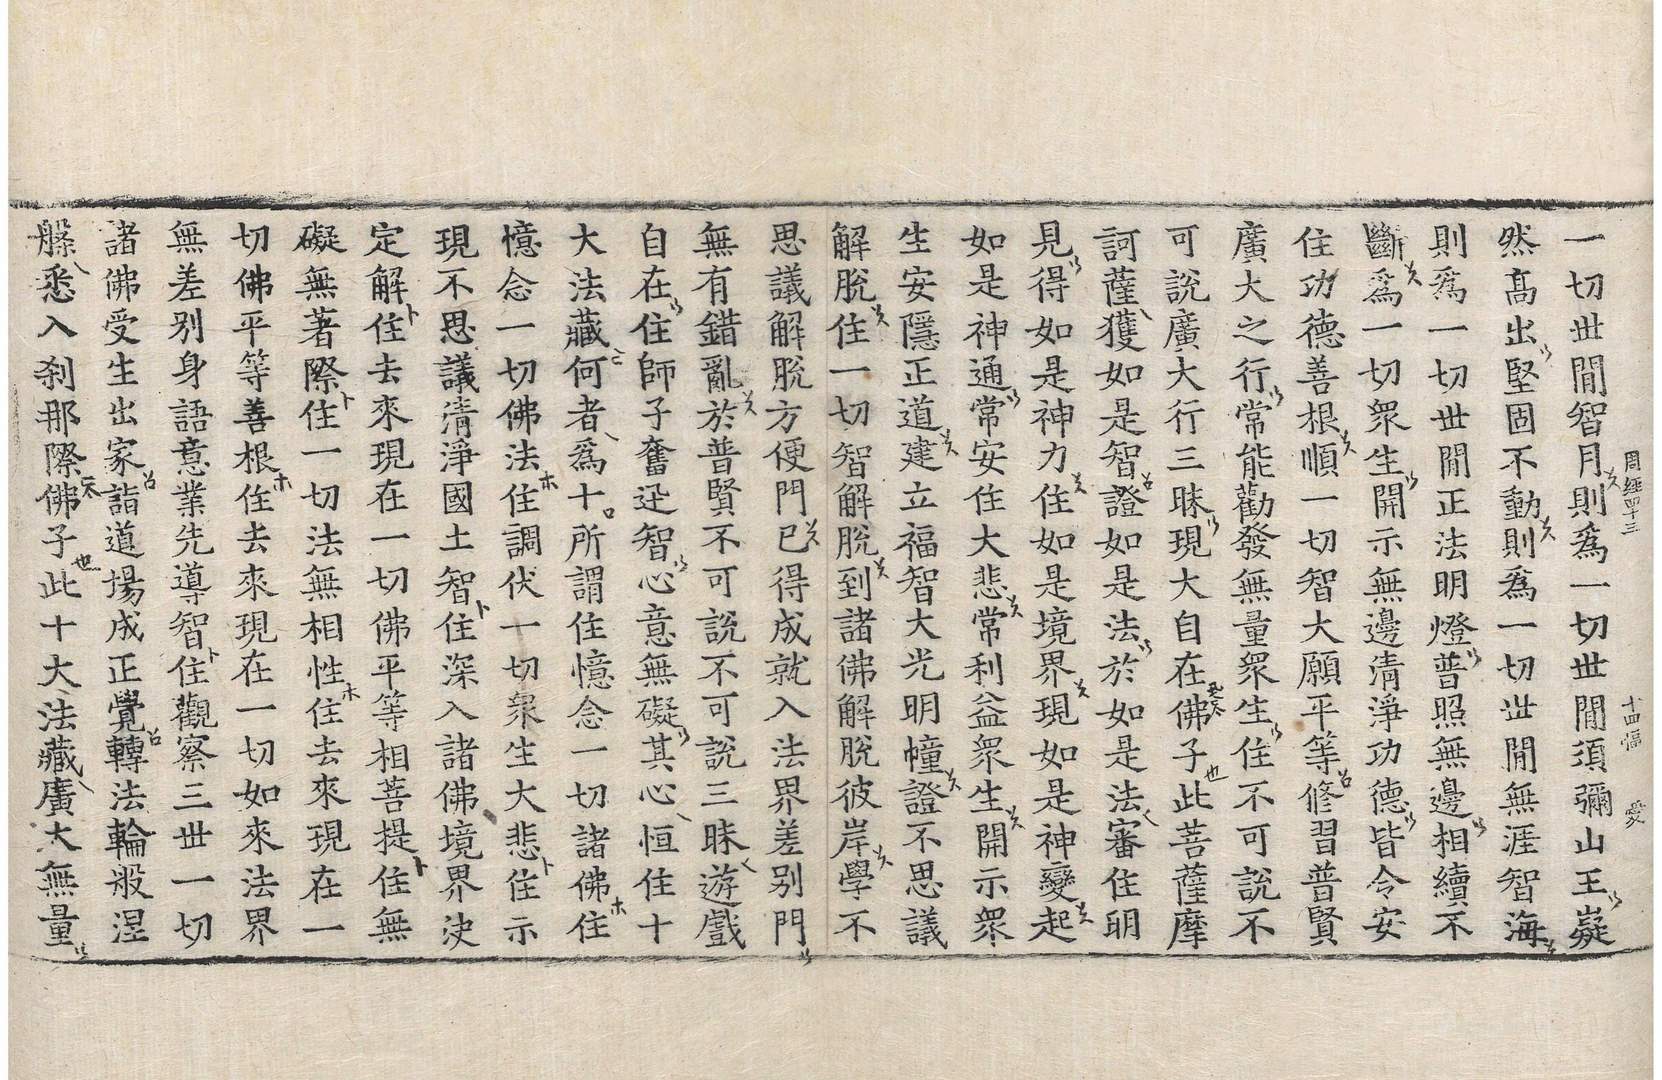 一切世閒智月則爲一切世閒須彌山王嶷
然高出堅固不動則爲一切世閒無涯智海
則爲一切世閒正法明燈普照無邊相續不
斷爲一切衆生開示無邊淸淨功德皆令安
住功德善根順一切智大願平等修習普賢
廣大之行常能勸發無量衆生住不可說不
可說廣大行三昧現大自在佛子此菩薩摩
訶薩獲如是智證如是法於如是法審住明
見得如是神力住如是境界現如是神變起
如是神通常安住大悲常利益衆生開示衆
生安隱正道建立福智大光明幢證不思議
解脫住一切智解脫到諸佛解脫彼岸學不
思議解脫方便門已得成就入法界差別門
無有錯亂於普賢不可說不可說三昧遊戲
自在住師子奮迅智心意無礙其心恒住十
大法藏何者爲十所謂住憶念一切諸佛住
憶念一切佛法住調伏一切衆生大悲住示
現不思議淸淨國土智住深入諸佛境界決
定解住去來現在一切佛平等相菩提住無
礙無著際住一切法無相性住去來現在一
切佛平等善根住去來現在一切如來法界
無差別身語意業先導智住觀察三世一切
諸佛受生出家詣道場成正覺轉法輪般涅
槃悉入刹那際佛子此十大法藏廣大無量
周經四十三 十四幅 愛